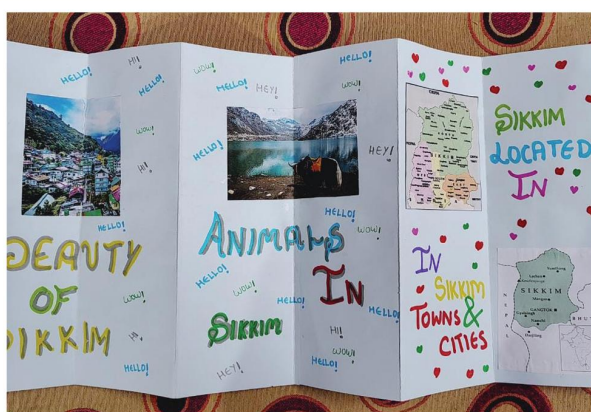 HELLO!
HI!
HELLO!
WOW!
HI!
HELLO!
BEAUTY
OF
SIKKIM
WOW!
HI!
HELLO!
WOW!
HELLO!
HEY!
WOW!
HELLO!
HELLO!
HEY!
HELLO!
WOW!
ANIMALS
IN
SIKKIM
HELLO!
WOW!
HELLO!
HELLO!
HI!
WOW!
HEY!
HELLO!
SIKKIM
IN
SIKKIM
TOWNS &
CITIES
SIKKIM
LOCATED
IN
SIKKIM
GANGTOK